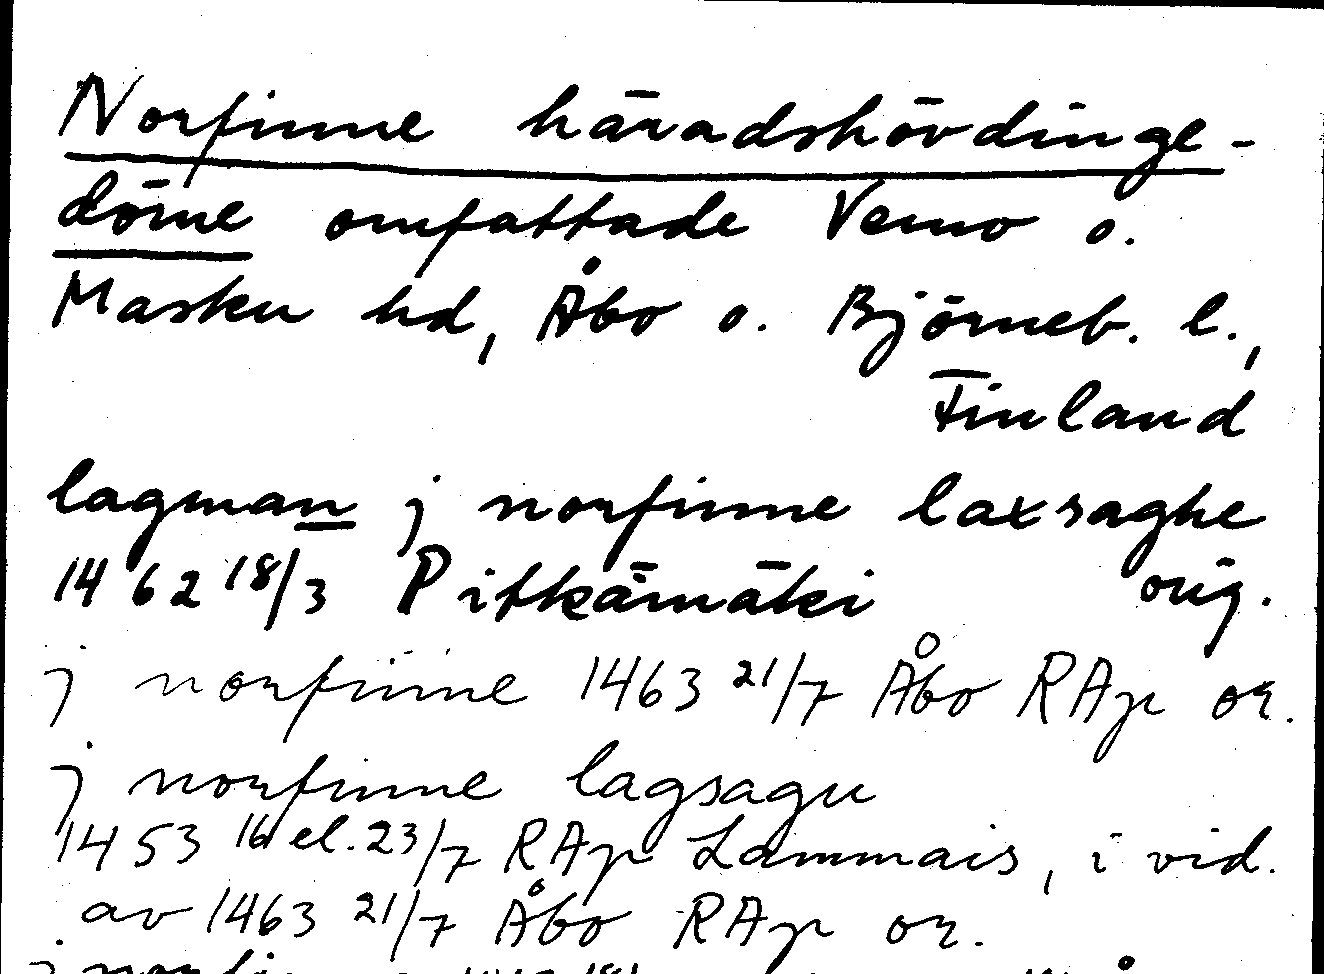 Norfinne häradshövdinge-
döme omfattade Vemo o.
Masku hd, Åbo o. Björneb. l.,
Finland
lagman j norfinne laxsaghe
1462 18/3 Pitkämäki orig.
j norfinne 1463 21/7 Åbo RAp or.
j norfinne lagsagu
1453 16 el. 23/7 RAp Lammais, i vid.
av 1463 21/7 Åbo RAp or.